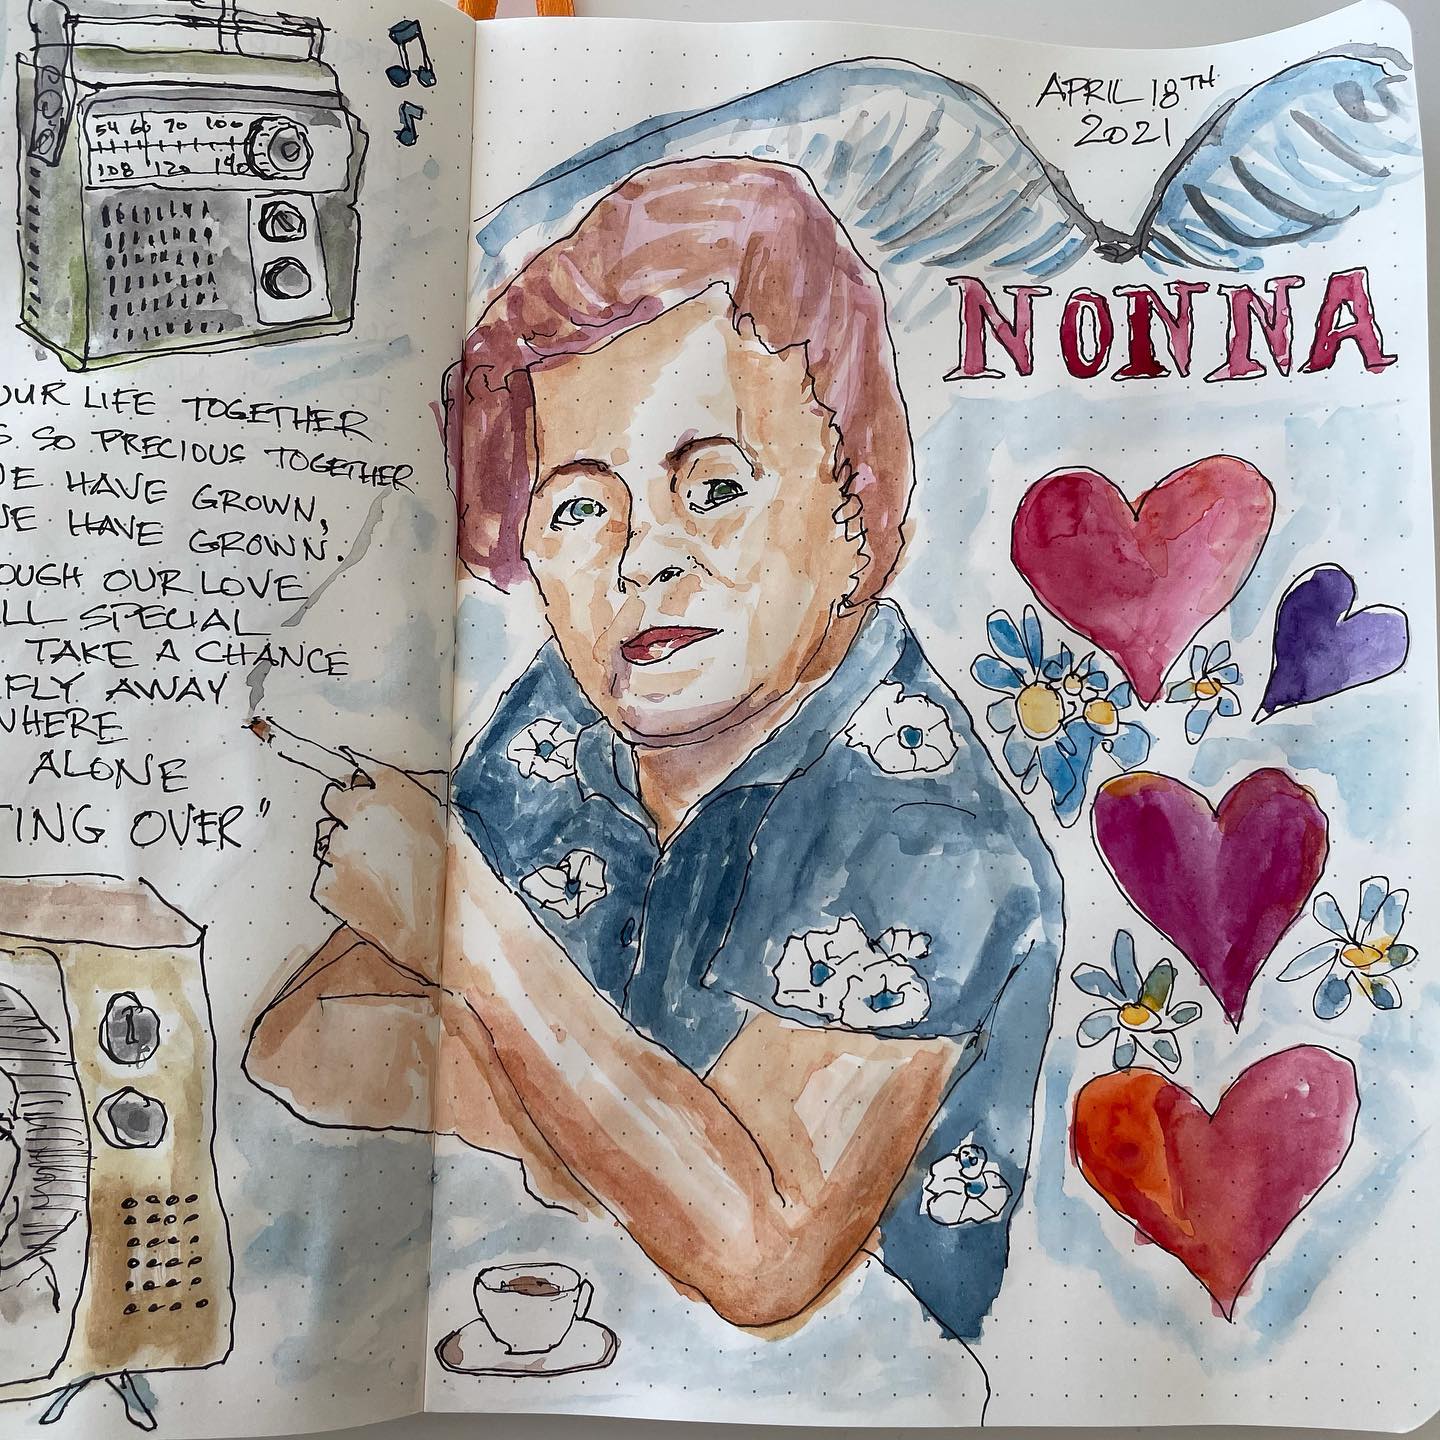 54 60 70 100
108 120 140
OUR LIFE TOGETHER
S SO PRECIOUS TOGETHER
WE HAVE GROWN,
WE HAVE GROWN.
OUGH OUR LOVE
LL SPECIAL
TAKE A CHANCE
FLY AWAY
WHERE
ALONE
TING OVER"
APRIL 18TH
2021
NONNA